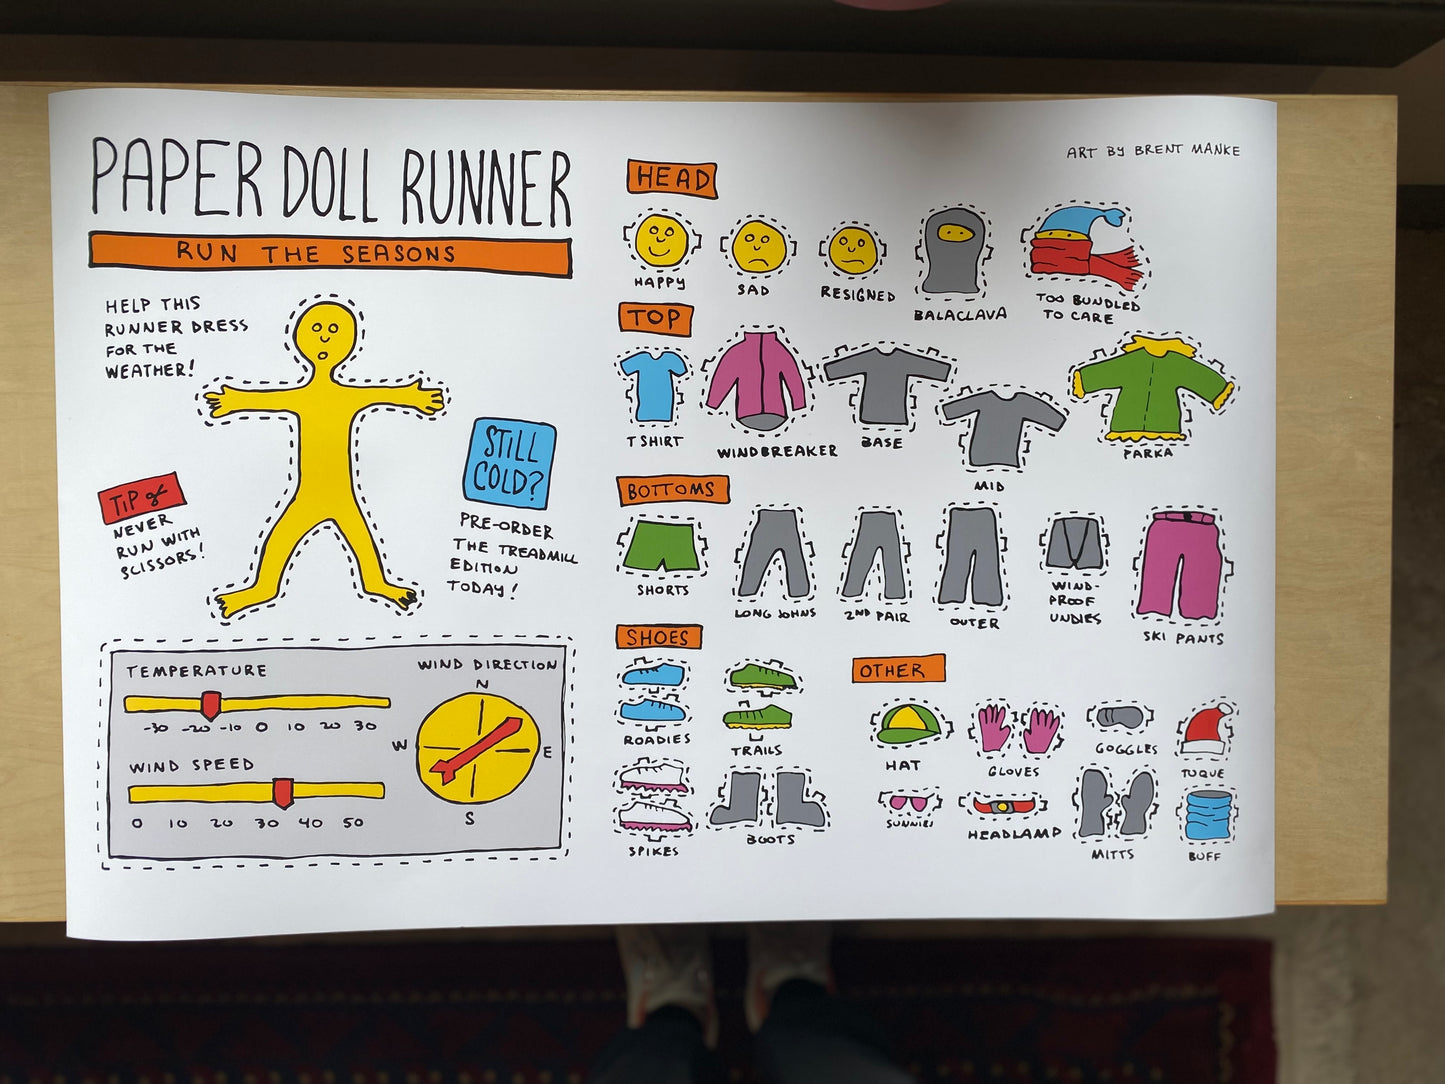 PAPER DOLL RUNNER
RUN THE SEASONS
HELP THIS
RUNNER DRESS
FOR THE
WEATHER!
TIP
NEVER
RUN WITH
SCISSORS!
STILL
COLD?
PRE-ORDER
THE TREADMILL
EDITION
TODAY!
TEMPERATURE
-30 -20 -10 0 10 20 30
WIND SPEED
0 10 20 30 40 50
WIND DIRECTION
N
W E
S
ART BY BRENT MANKE
HEAD
HAPPY
SAD
RESIGNED
BALACLAVA
TOO BUNDLED
TO CARE
TOP
T SHIRT
WINDBREAKER
BASE
MID
PARKA
BOTTOMS
SHORTS
LONG JOHNS
2ND PAIR
OUTER
WIND-
PROOF
UNDIES
SKI PANTS
SHOES
ROADIES
TRAILS
SPIKES
BOOTS
OTHER
HAT
GLOVES
GOGGLES
TUQUE
SUNNIES
HEADLAMP
MITTS
BUFF